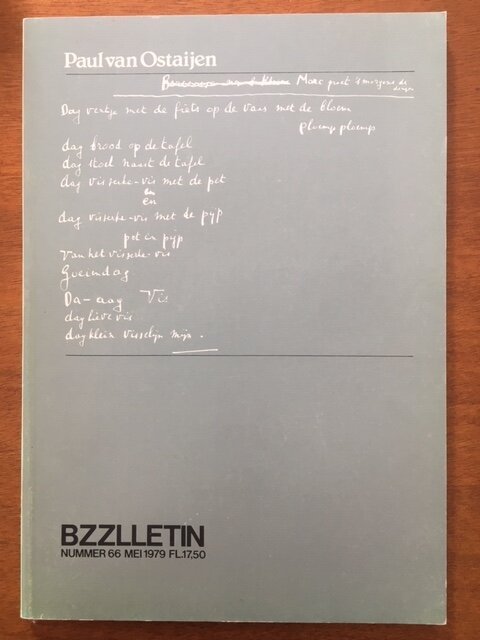 Paul van Ostaijen
Marc groet 's morgens de
dingen
Dag ventje met de fiets op de vaas met de bloem
ploem ploem
dag brood op de tafel
dag stoel naast de tafel
dag visserke-vis met de pet
en
dag visserke-vis met de pijp
pet en pijp
van het visserke-vis
Goeiendag
Da-aag Vis
dag lieve vis
dag klein visselijn mijn.
BZZLLETIN
NUMMER 66 MEI 1979 FL.17,50